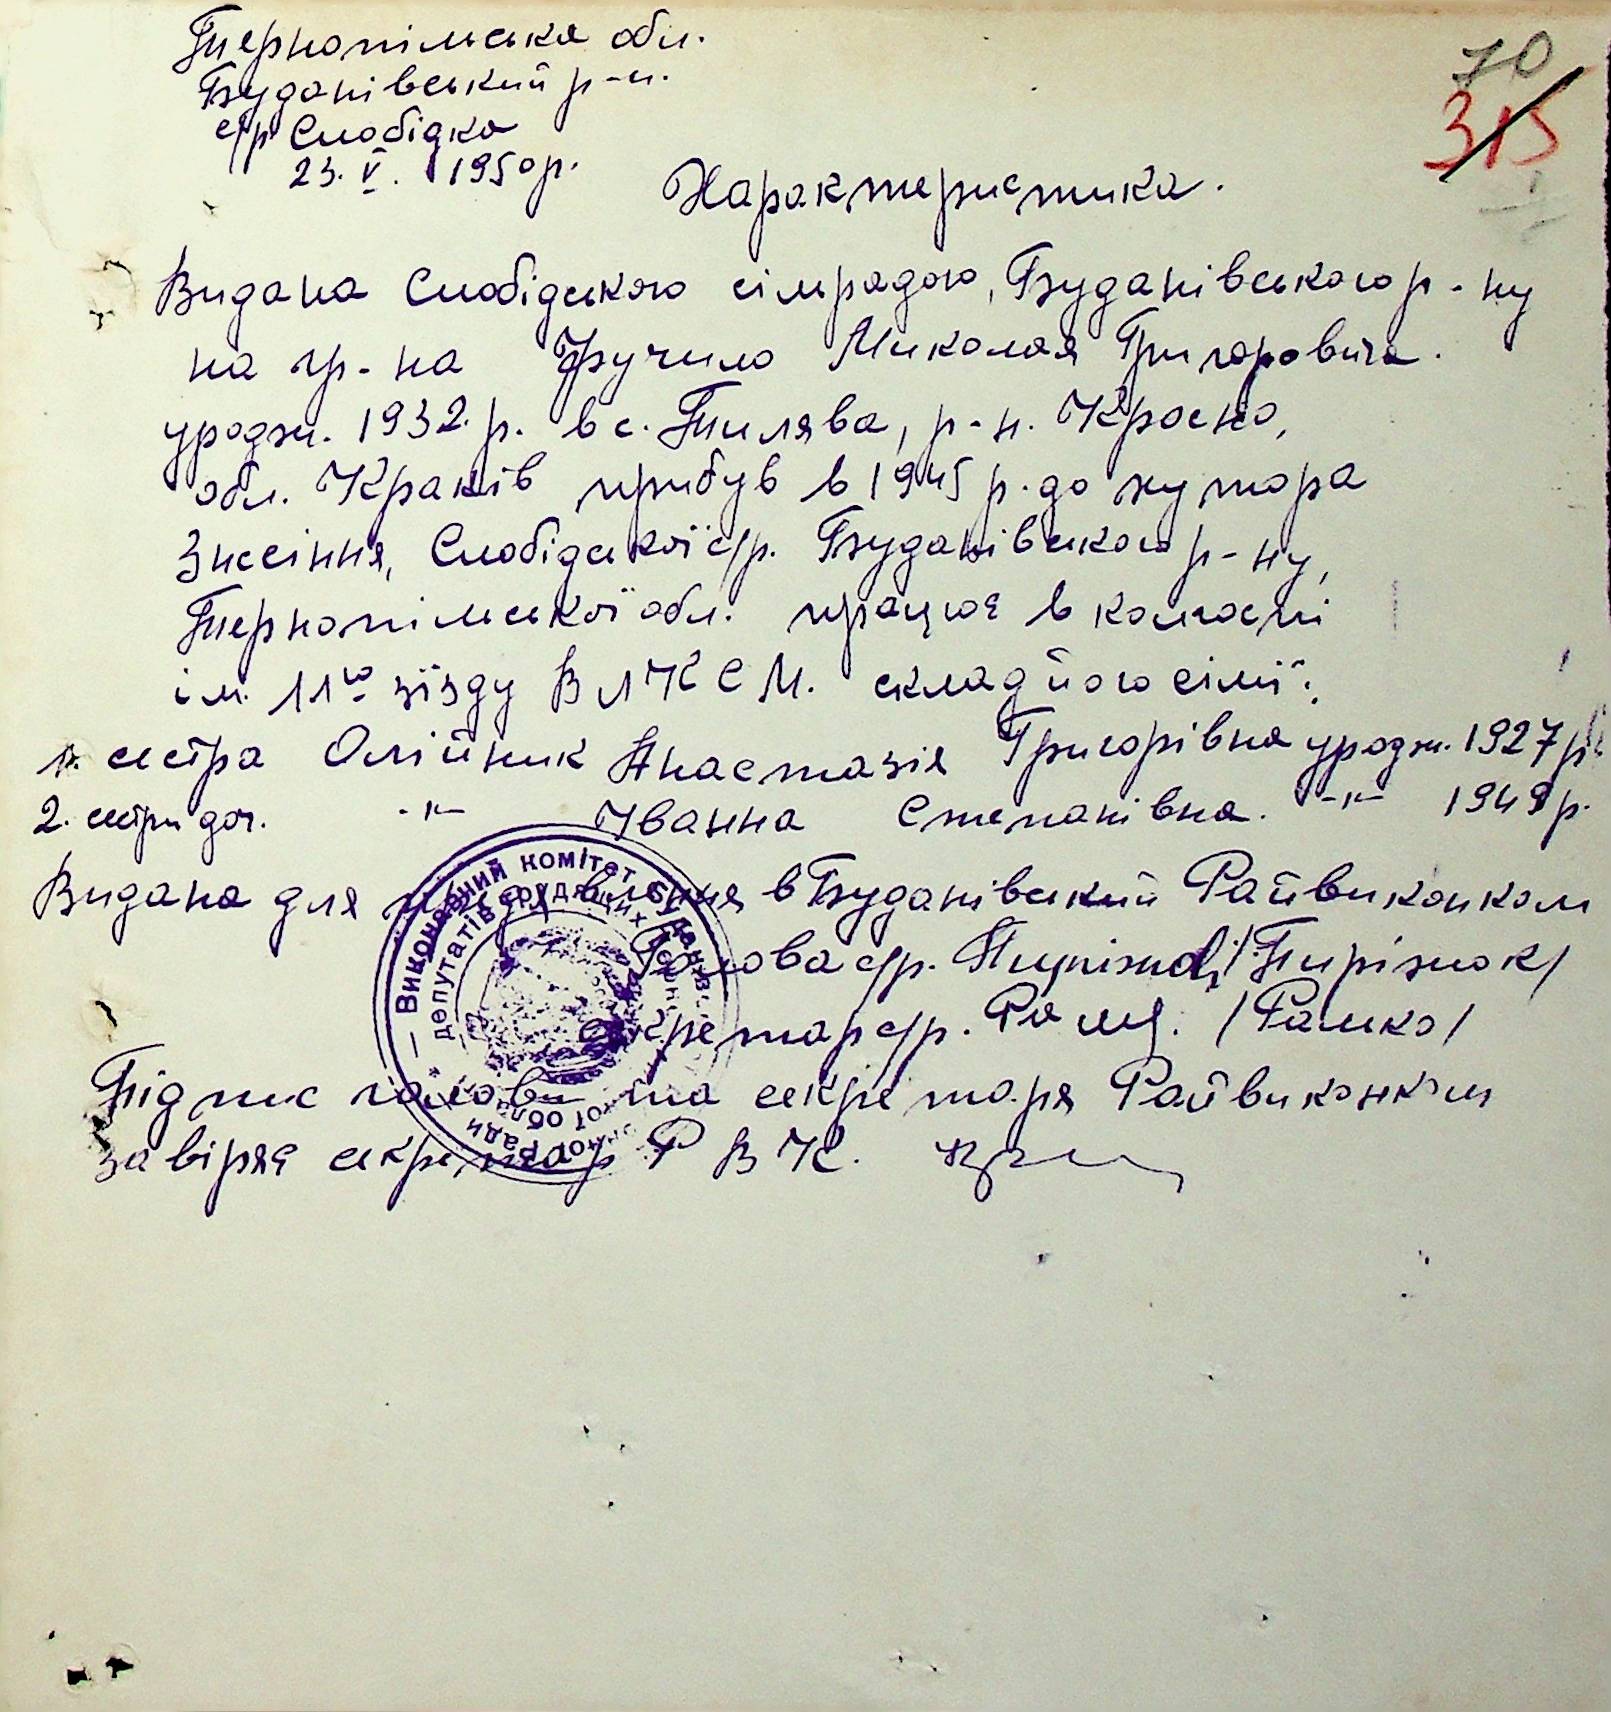 Тернопільська обл.
Буданівський р-н.
с/р Слобідка
23. V. 1950 р.
70
315
Характеристика.
Видана Слобідською сілрадою, Буданівського р-ну
на гр-на Фручило Миколая Григоровича.
уродж. 1932. р. в с. Тилява, р-н. Кросно,
обл. Краків прибув в 1945 р. до хутора
Знесіння, Слобідської с/р. Буданівського р-ну,
Тернопільської обл. працює в колгоспі
ім. 11го зїзду ВЛКСМ. склад його сімї:
1. сестра Олійник Анастазія Григорівна уродж. 1927 р.
2. сестри доч. -"- Іванна Степанівна. -"- 1949 р.
Видана для предявлення в Буданівський Райвиконком
Голова с/р. /Пирізнок/
секретар с/р. /Рамко/
Підпис голови та секретаря Райвиконком
завіряє секретар Р В К.
Виконавчий комітет Буданівс
депутатів трудящих
ради